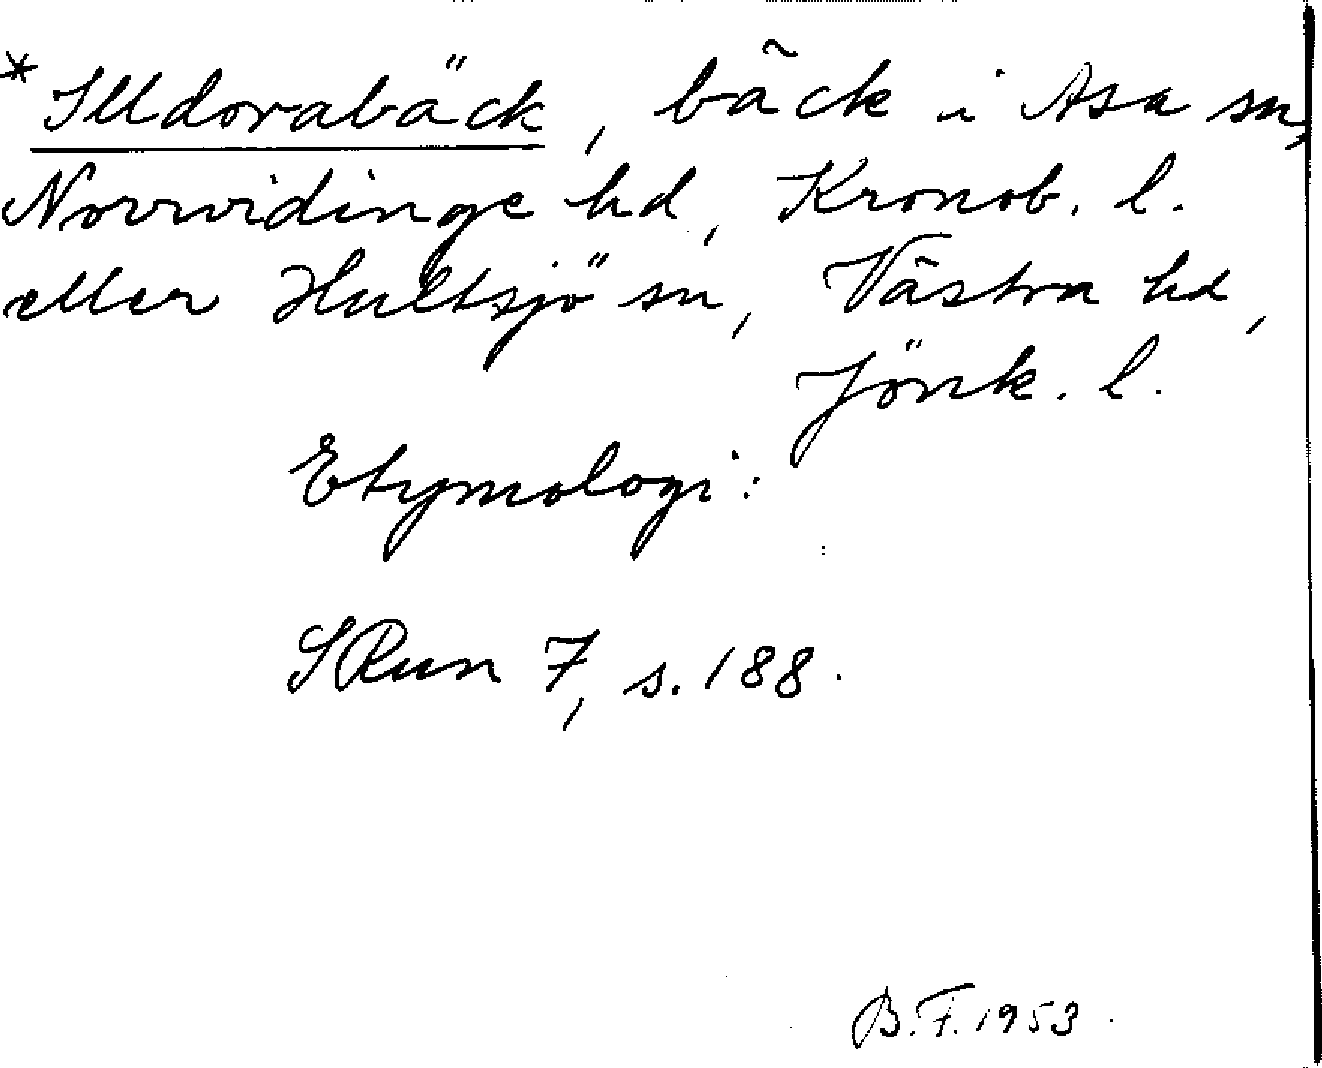 *Illdorabäck, bäck i Asa sn,
Norrvidinge hd, Kronob. l.
eller Hultsjö sn, Västra hd,
Jönk. l.
Etymologi:
SRun 7, s. 188.
B.F. 1953.